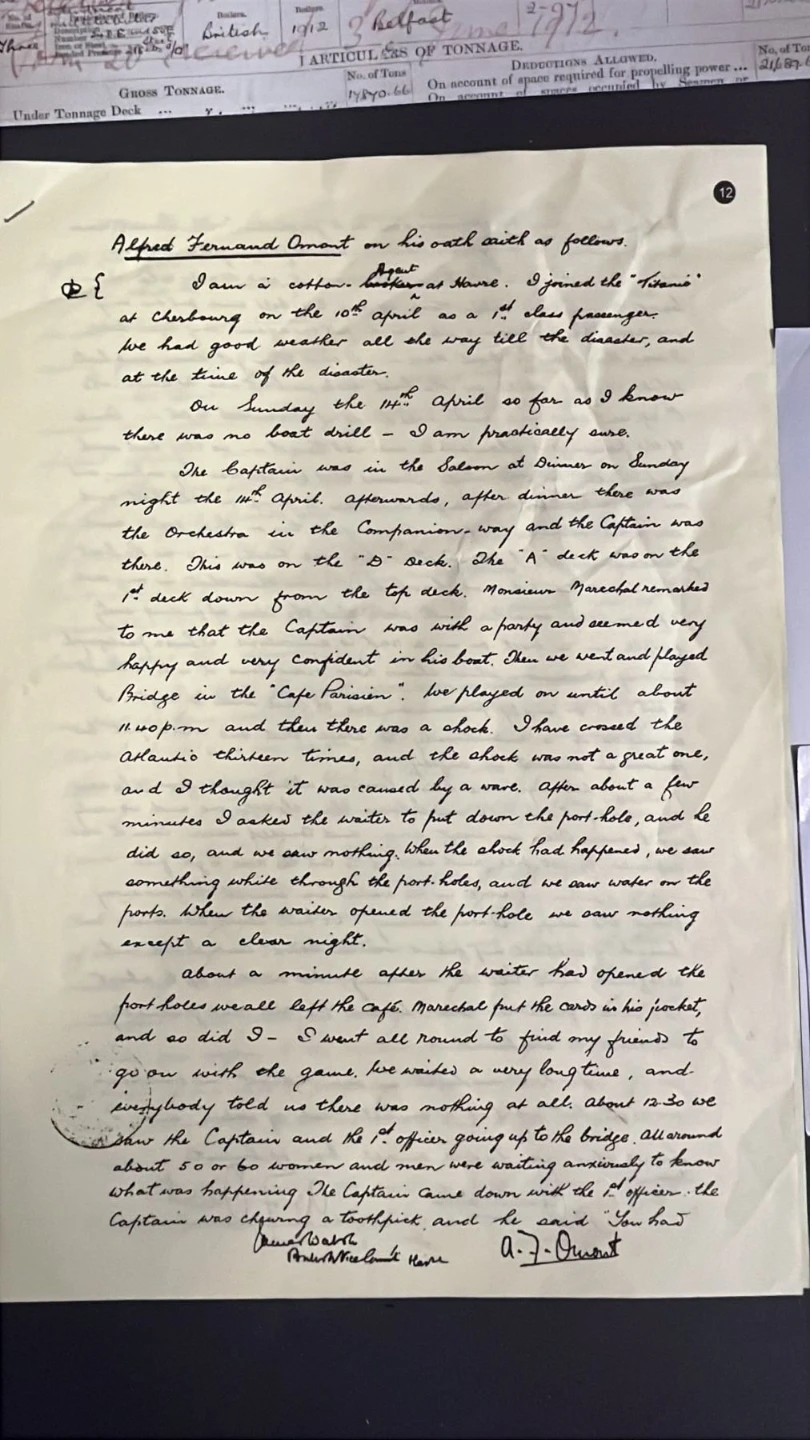 British 10/12 Belfast 1912.
PARTICULARS OF TONNAGE.
GROSS TONNAGE.
No. of Tons
DEDUCTIONS ALLOWED.
No. of To
Under Tonnage Deck ...
17870.66
On account of space required for propelling power ...
On account of spaces occupied by Seamen
12
Alfred Fernand Omont on his oath saith as follows.
I am a cotton-broker Agent at Havre. I joined the "Titanic"
at Cherbourg on the 10th April as a 1st class passenger.
We had good weather all the way till the disaster, and
at the time of the disaster.
On Sunday the 14th April so far as I know
there was no boat drill - I am practically sure.
The Captain was in the Saloon at Dinner on Sunday
night the 14th April. Afterwards, after dinner there was
the Orchestra in the Companion-way and the Captain was
there. This was on the "D" Deck. The "A" deck was on the
1st deck down from the top deck. Monsieur Marechal remarked
to me that the Captain was with a party and seemed very
happy and very confident in his boat. Then we went and played
Bridge in the "Cafe Parisien". We played on until about
11.40 p.m and then there was a shock. I have crossed the
Atlantic thirteen times, and the shock was not a great one,
and I thought it was caused by a wave. After about a few
minutes I asked the waiter to put down the port-hole, and he
did so, and we saw nothing. When the shock had happened, we saw
something white through the port-holes, and we saw water on the
ports. When the waiter opened the port-hole we saw nothing
except a clear night.
About a minute after the waiter had opened the
port holes we all left the café. Marechal put the cards in his pocket,
and so did I - I went all round to find my friends to
go on with the game. We waited a very long time, and
everybody told us there was nothing at all. About 12.30 we
saw the Captain and the 1st officer going up to the bridge. All around
about 50 or 60 women and men were waiting anxiously to know
what was happening The Captain came down with the 1st officer. the
Captain was chewing a toothpick, and he said "You had
James Walsh
British Vice Consul Havre
A. F. Omont